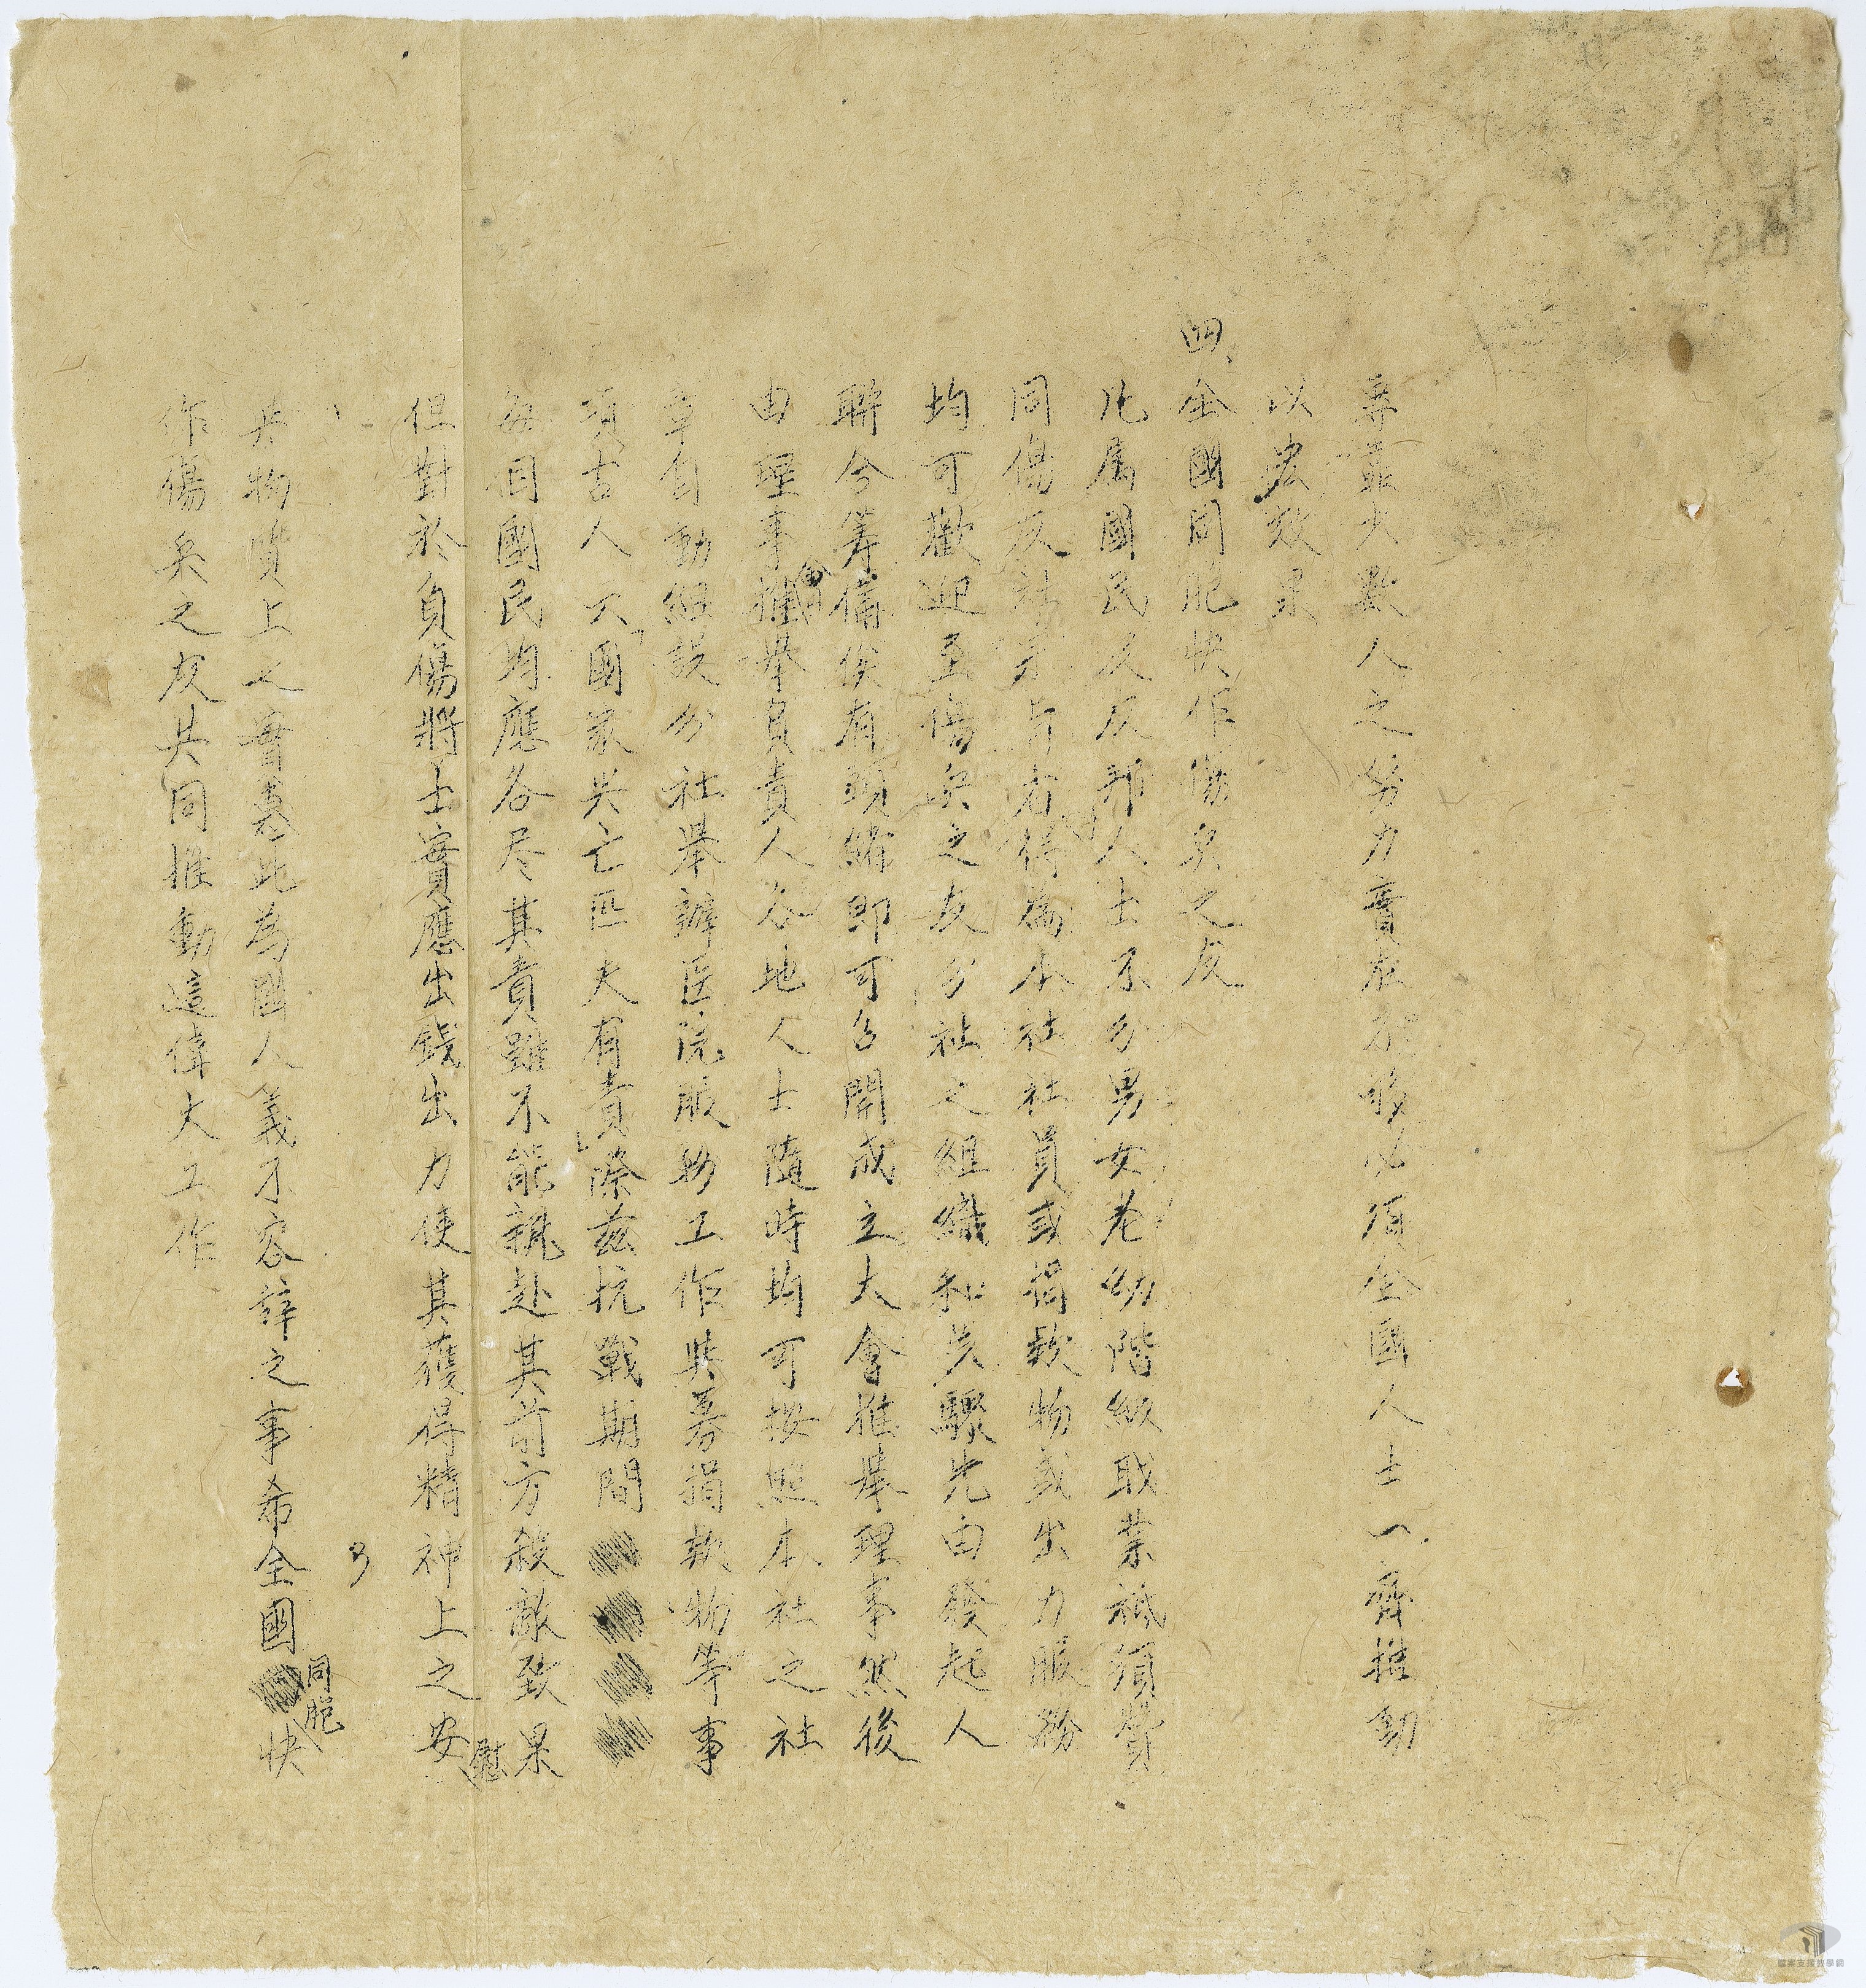 專靠少數人之努力實在不夠必須全國人士一齊推動
以宏效果
四、全國同胞快作傷兵之友
凡属國民及友邦人士不分男女老幼階級職業祗須贊
同傷友社宗旨者得為本社社員或捐款物或出力服務
均可歡迎至傷兵之友分社之組織和步驟先由發起人
聯合籌備俟有頭緒即可召開成立大會推舉理事然後
由理事會推舉負責人各地人士随時均可按照本社之社
章自動組設分社舉辦医院服務工作與募捐款物等事
項古人云「國家兴亡匹夫有責」際兹抗戰期間
每個國民均應各尽其責雖不能親赴其前方殺敵致果
但對於負傷將士實應出錢出力使其獲得精神上之安慰
与
其物質上之實惠此為國人義不容辞之事希全國同胞快
作傷兵之友共同推動這偉大工作